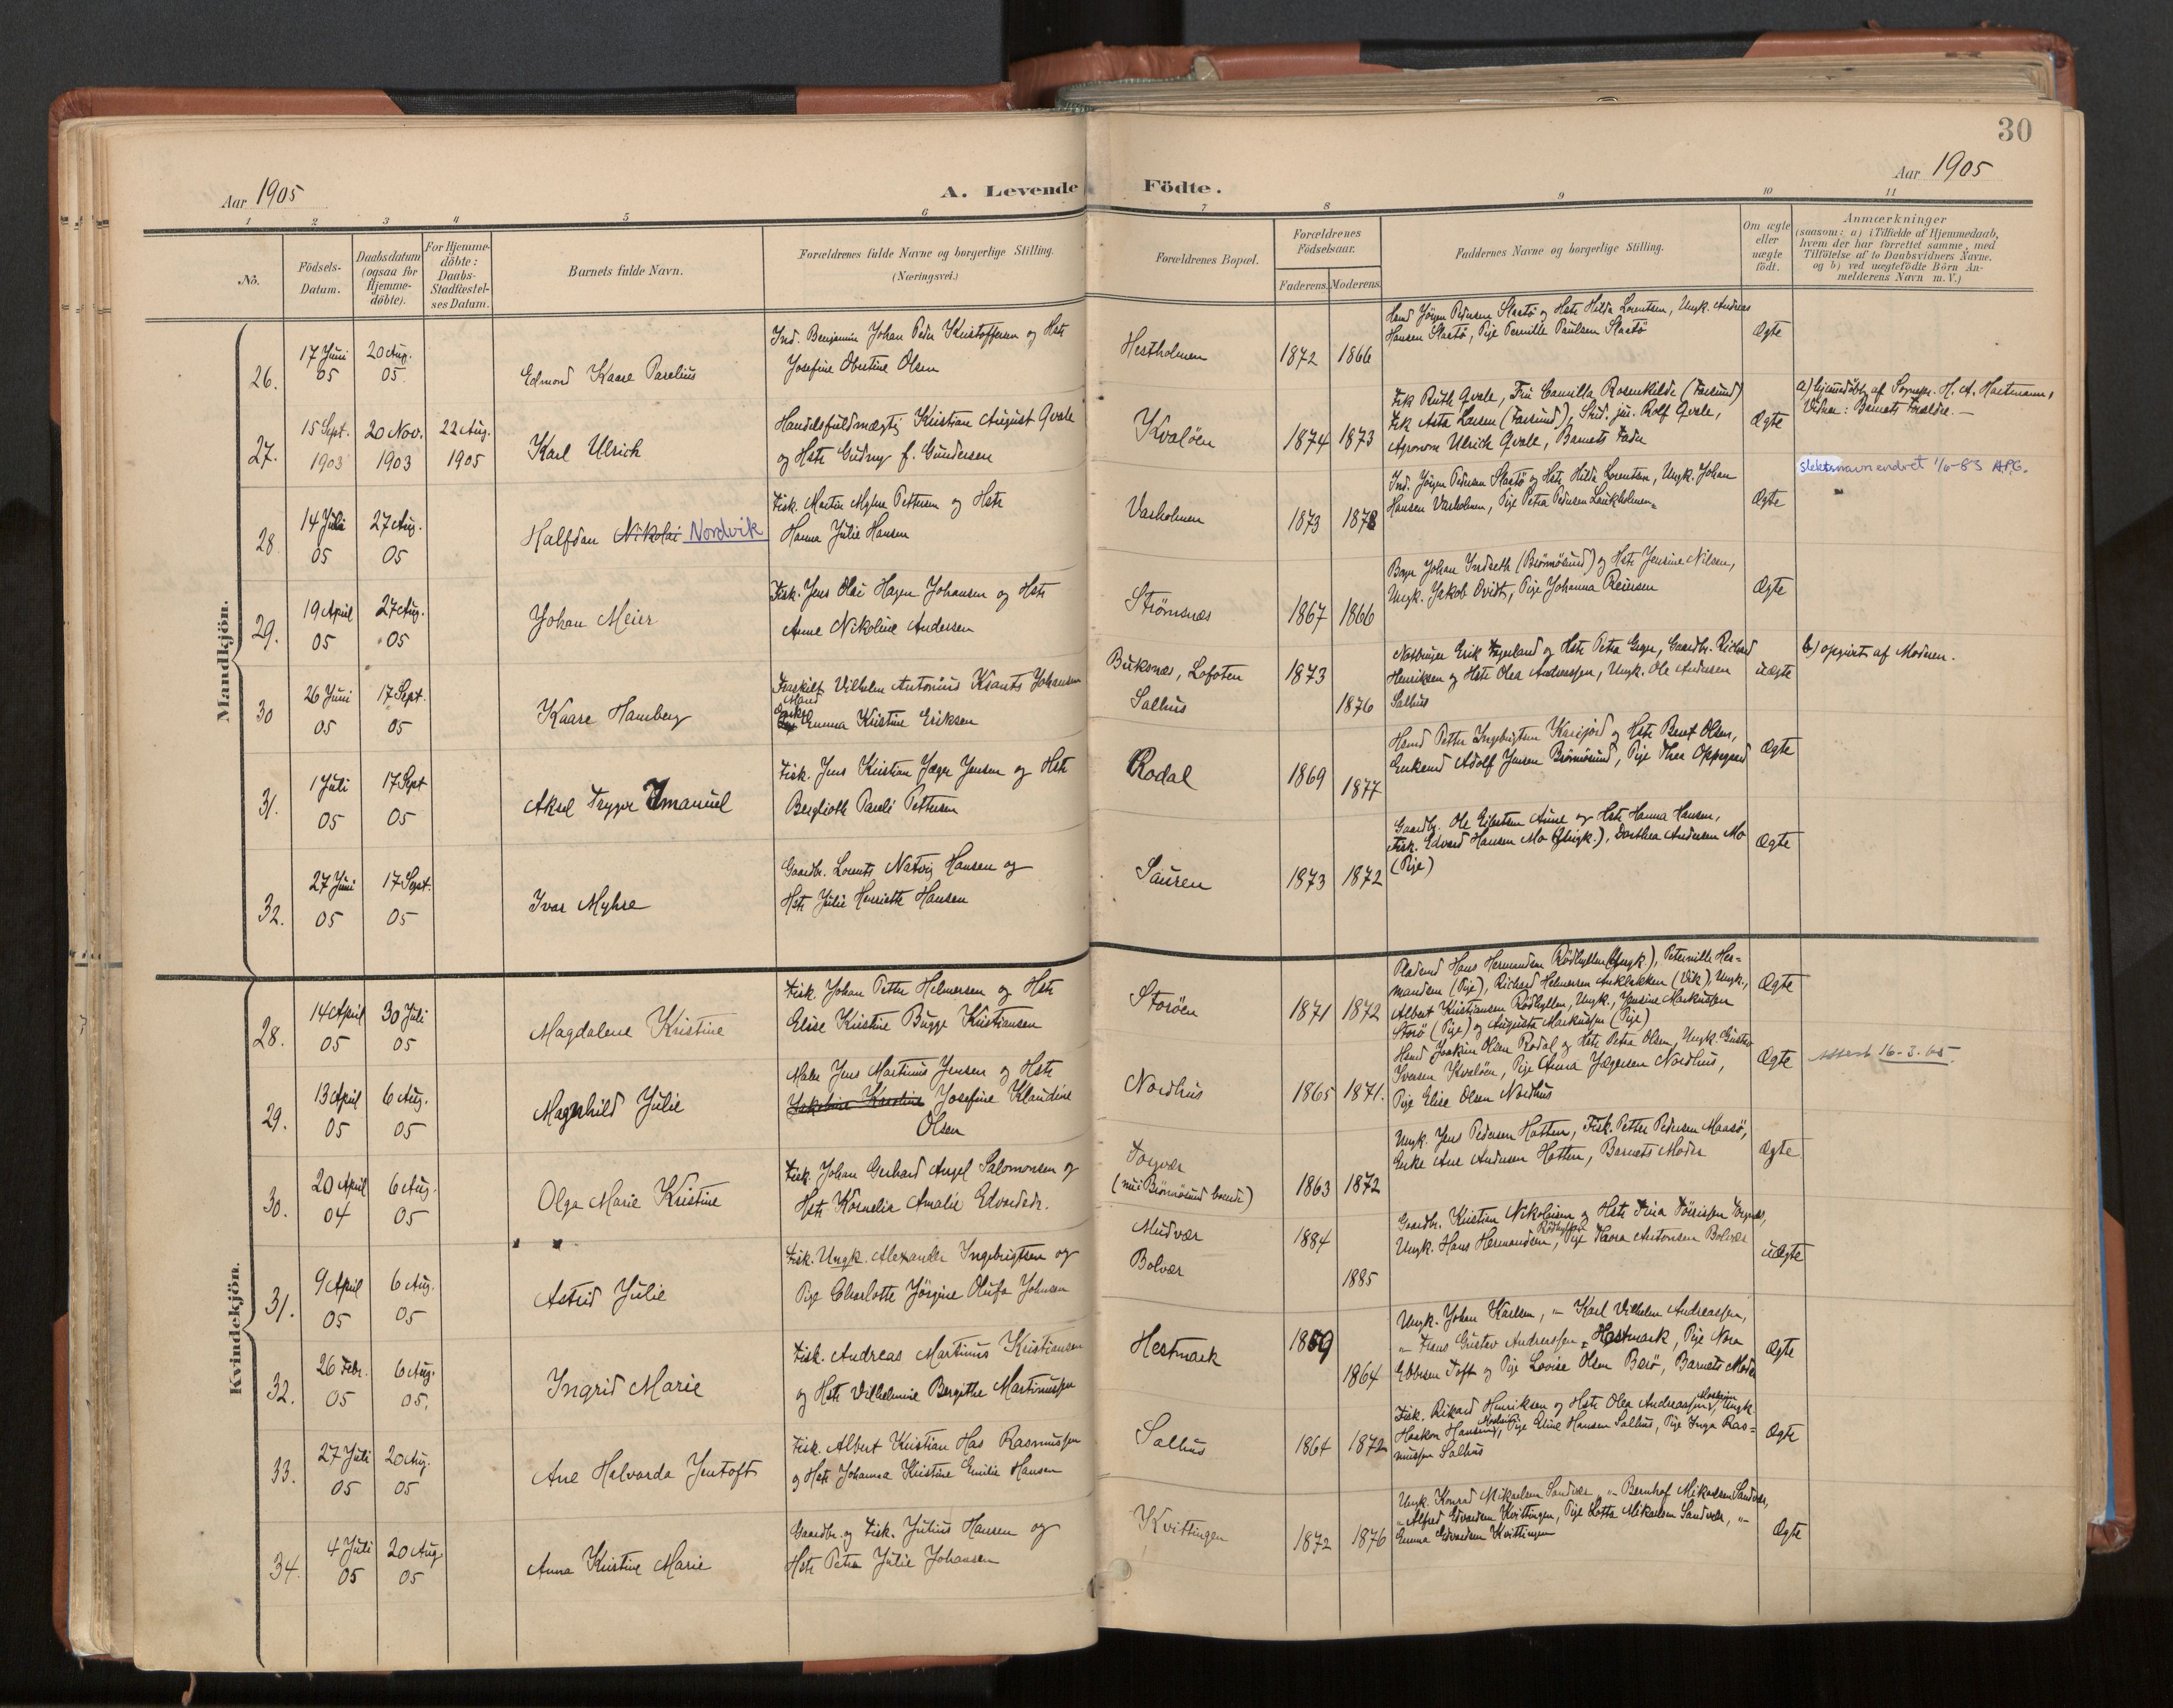 30
Aar 1905
A. Levende Födte.
Aar 1905
1 2 3 4 5 6 7 8 9 10 11
No.
Födsels-
Datum.
Daabsdatum
(ogsaa for
Hjemme-
döbte).
For Hjemme-
döbte:
Daabs-
Stadfæstel-
ses Datum.
Barnets fulde Navn.
Forældrenes fulde Navne og borgerlige Stilling.
(Næringsvei.)
Forældrenes Bopæl.
Forældrenes
Födselsaar.
Faderens. Moderens.
Faddernes Navne og borgerlige Stilling.
Om ægte
eller
uægte
födt.
Anmærkninger
(saasom: a) i Tilfælde af Hjemmedaab,
hvem der har forrettet samme, med
Tilföielse af to Daabsvidners Navne.
og b) ved uægtefödte Börn An-
melderens Navn m.V.)
Mandkjön.
26.
17 Juni
05
20 Aug.
05
Edmond Kaare Parelius
Ind. Benjamin Johan Peder Kristoffersen og Hstr
Josefine Obertine Olsen
Hestholmen
1872 1866
Hand Jörgen Pedersen Slaatö og Hstr Hilda Lorentsen, Ungk. Andreas
Hansen Slaatö, Pige Pernille Paulsen Slaatö
Ægte
27.
15 Sept.
1903
20 Nov.
1903
22 Aug.
1905
Karl Ulrich
Handelsfuldmægtig Kristian August Qvale
og Hstr Gudrny f. Gundersen
Kvalöen
1874 1873
Frk Ruth Qvale, Fru Camilla Rosenkilde (Farsund)
Frk Asta Larsen (Farsund), Stud. jur. Rolf Qvale,
Agronom Ulrich Qvale, Barnets Fader
Ægte
a) hjemmedöbt af Sognepr. H. A. Hartmann,
Vidner: Barnets Forældre. —
28
14 Juli
05
27 Aug.
05
Halfdan Nikolai Nordvik
Fisk. Martin Myhre Pettersen og Hstr
Hanna Julie Hansen
Vasholmen
1873 1878
Ind. Jörgen Pedersen Slaatö og Hstr Hilda Lorentsen, Ungk. Johan
Hansen Vasholmen, Pige Petra Pedersen Laukholmen
Ægte
slektsnavn endret 1/6-83 APG.
29.
19 April
05
27 Aug.
05
Johan Meier
Fisk. Jens Olai Hagen Johansen og Hstr
Anne Nikoline Andersen
Strömsnæs
1867 1866
Johan Indseth (Brönnösund) og Hstr Jensine Nilsen,
Ungk. Jakob Qvidt, Pige Johanna Reinsen
Ægte
30
26 Juni
05
17 Sept.
05
Kaare Hamberg
Fraskilt Mand Vilhelm Antonius Krants Johansen
Enke Emma Kristine Eriksen
Buksnæs, Lofoten
Salhus
1873
1876
Erik Fagerland og Hstr Petra Geger, Gaardbr. Richard
Henriksen og Hstr Olea Andreassen, Ungk. Ole Andersen
Salhus
uægte
b) opgivet af Moderen.
31.
1 Juli
05
17 Sept
05
Aksel Trygve Imanuel
Fisk. Jens Kristian Jæger Jensen og Hstr
Berglioth Pareli Pettersen
Rodal
1869
1877
Hand Petter Ingebrigtsen Karifjord og Hstr Berit Olsen,
Enkemd Adolf Jensen Brönnösund, Pige Thea Oppegaard
Ægte
32.
27 Juni
05
17 Sept.
05
Ivar Myhre
Gaardbr. Lorents Natvig Hansen og
Hstr Julie Henriette Hansen
Sauren
1873 1872
Gaardbr. Ole Eilertsen Aune og Hstr Hanna Hansen,
Fisk. Edvard Hansen Mo (Ungk.), Dorthea Andersen Mo
(Pige)
Ægte
Kvindekjön.
28.
14 April
05
30 Juli
05
Magdalene Kristine
Fisk. Johan Petter Helmersen og Hstr
Elise Kristine Bugge Kristiansen
Storöen
1871 1872
Pladsmd Hans Hermandsen Rödhyllen (Ungk), Peternille Her-
mandsen (Pige), Richard Helmersen Anklakken (Vik), Ungk.,
Albert Kristiansen Rödhyllen, Ungk., Jensine Markussen
Storö (Pige) og Augusta Markussen (Pige)
Ægte
29.
13 April
05
6 Aug.
05
Magnhild Julie
Maler Jens Martinus Jensen og Hstr
Jakobine Karoline Josefine Klaudine
Olsen
Nordhus
1865 1871.
Hand Joakim Olsen Rodal og Hstr Petra Olsen, Ungk. Gustav
Iversen Kvalöen, Pige Anna Jægersen Nordhus,
Pige Elise Olsen Nordhus
Ægte
Attest 16-3-65.
30.
20 April
04
6 Aug.
05
Olga Marie Kristine
Fisk. Johan Gerhard Angel Salomonsen og
Hstr Kornelia Amalie Edvardsdr.
Torgvær
(nu i Brönnösund boende)
1863 1872
Ungk. Jens Pedersen Hatten, Fisk. Petter Pedersen Maasö,
Enke Ane Andersen Hatten, Barnets Moder
Ægte
31.
9 April
05
6 Aug.
05
Astrid Julie
Fisk. Ungk. Alexander Ingebrigtsen og
Pige Charlotte Jörgine Olufa Johnsen
Mudvær
Bolvær
1884
1885
Gaardbr. Kristian Nikolaisen og Hstr Fina Törrissen
Ungk. Hans Hermandsen Rödhyllen, Pige Thora Antonsen Bolvær
uægte
32.
26 Febr.
05
6 Aug.
05.
Ingrid Marie
Fisk. Andreas Martinus Kristiansen
og Hstr Vilhelmine Bergithe Martinussen
Hestmark
1859
1864
Ungk. Johan Karlsen, "– Karl Vilhelm Andreassen,
"– Frans Gustav Andreassen Hestmark, Pige Nora
Ebbesen Toft og Pige Lovise Olsen Berö, Barnets Moder
Ægte
33.
27 Juli
05
20 Aug.
05
Ane Halvarda Jentoft
Fisk. Albert Kristian Has Rasmussen
og Hstr Johanna Kristine Emilie Hansen
Salhus
1864 1872
Fisk. Rikard Henriksen og Hstr Olea Andreassen, Ungk.
Haakon Hansen, Pige Eline Hansen Salhus, Pige Inga Ras-
mussen Salhus
Ægte
34.
4 Juli
05
20 Aug.
05
Anna Kristine Marie
Gaardbr. og Fisk. Julius Hansen og
Hstr Petra Julie Johansen
Kvittingen
1872 1876
Ungk. Konrad Mikaelsen Sandvær, "– Bernhof Mikaelsen Sandvær,
"– Alfred Edvardsen Kvittingen, Pige Lotta Mikaelsen Sandvær, "–
Emma Edvardsen Kvittingen
Ægte